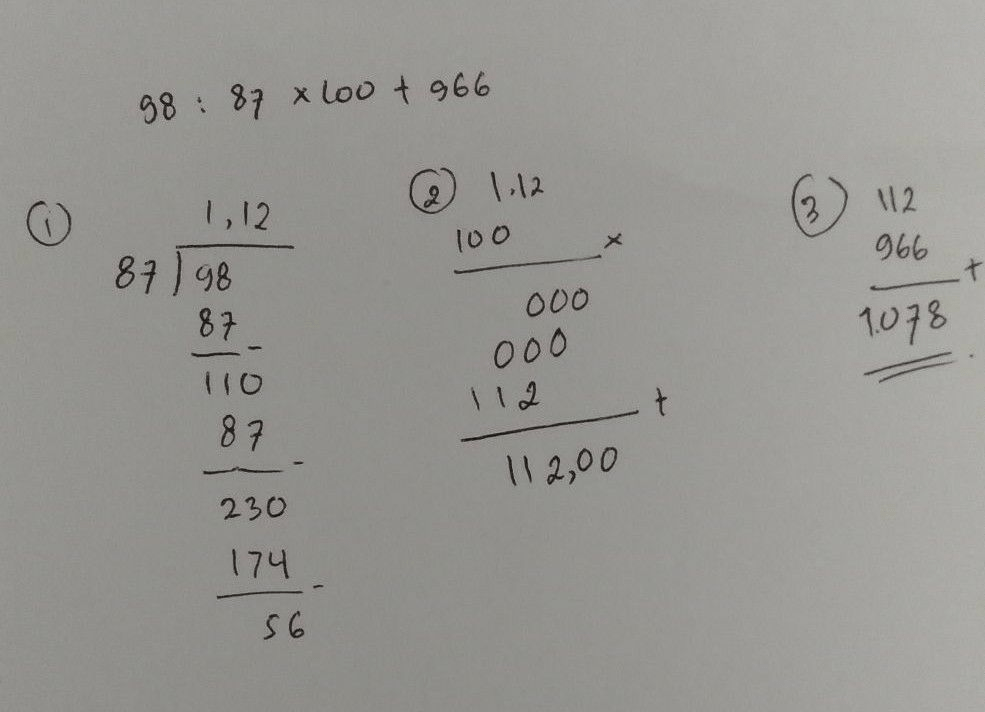 98 : 87 × 100 + 966
①
1,12
87 98
87 -
110
87 -
230
174 -
56
②
1,12
100 ×
000
000
112 +
112,00
③
112
966 +
1.078